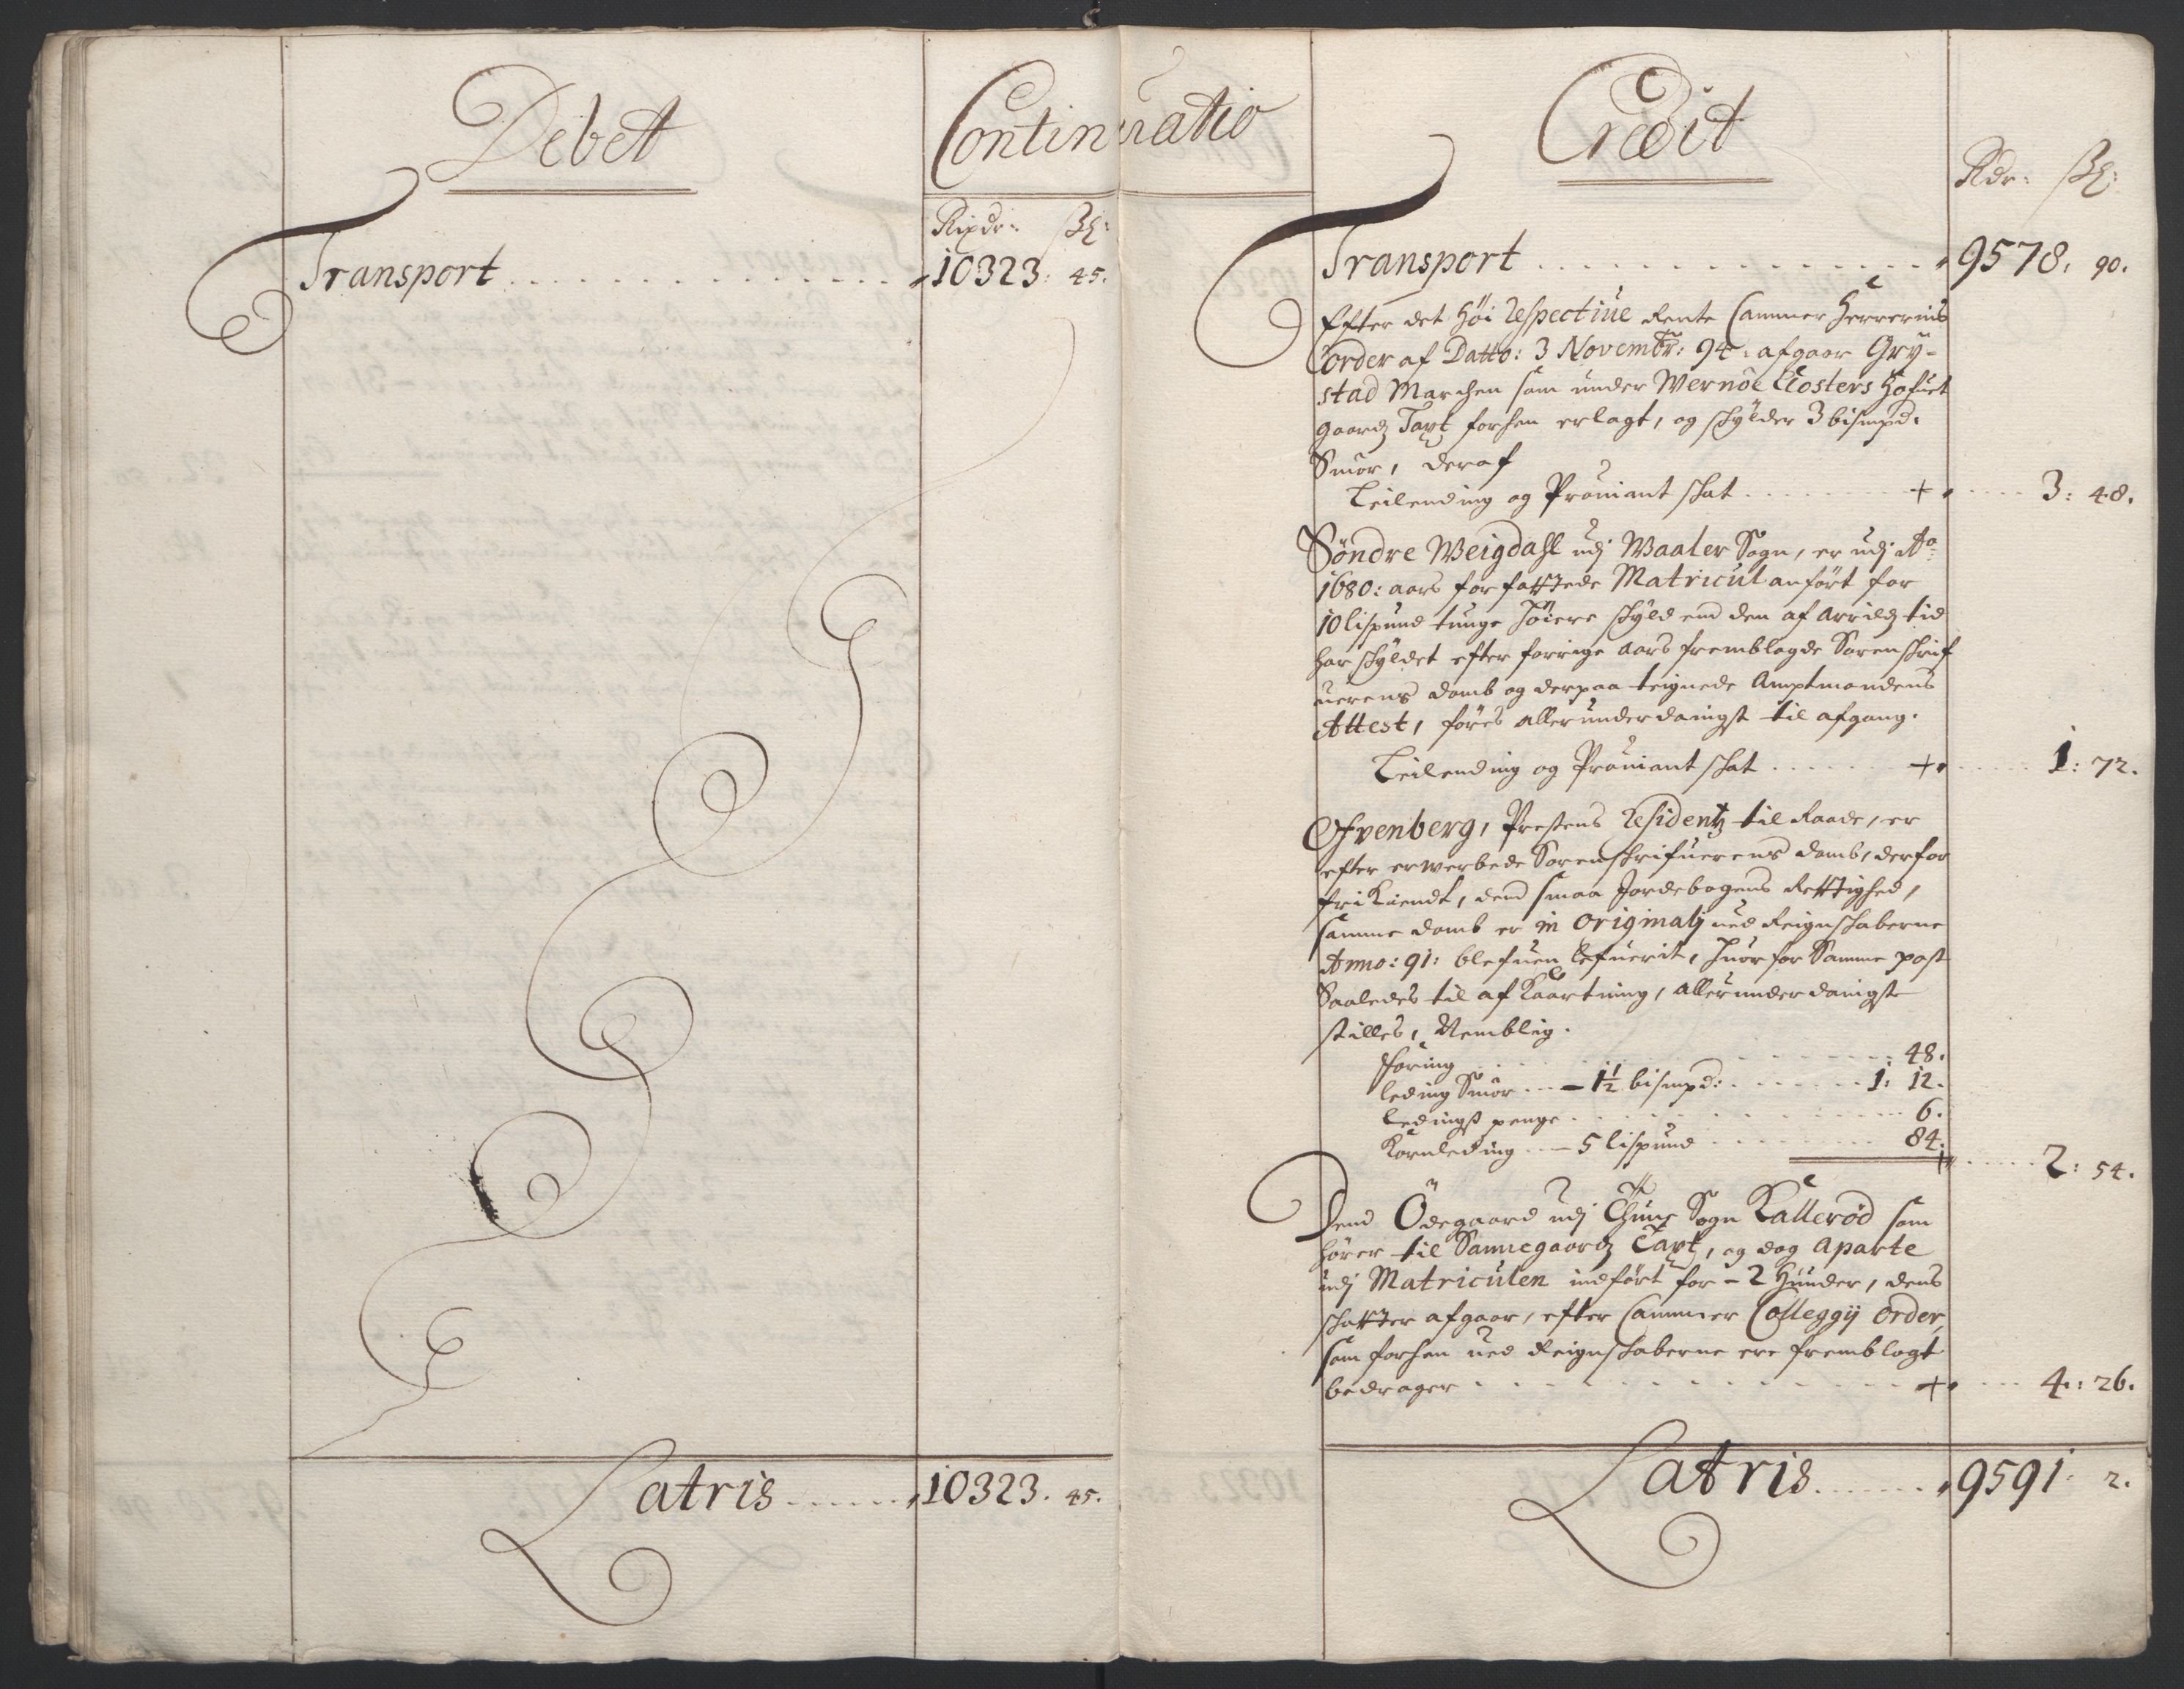 Debet
Continuatio
Rixdr: ßl:
Transport 10323: 45.
Latris 10323. 45.
Credit
Rdr: ßl:
Transport 9578: 90.
Efter det Høi respectiue Rente Cammer Herrernis
order af Datto: 3 Novembr: 94: afgaar Gry-
stad Marchen som under Wernöe Closters Hofuet
gaardz Taxt forhen erlagt, og schylder 3 bismpd.
Smör, deraf
Leilending og Prouiant schat + 3: 48.
Söndre Weigdahl udj Waaler Sogn, er udj Ao
1680: aars forfattede Matricul anfört for
10 lispund tunge höiere schyld end den af arrildz tid
har schyldet efter forrige aars fremblagde Sorenschrif
uerens domb og derpaa teignede Amptmandens
Attest, föres allerunderdaingst til afgang.
Leilending og Prouiant schat + 1: 72.
Ofvenberg, Prestens Residentz til Raade, er
efter erwerbede Sorenschrifuerens domb, derfor
frikiendt, dend smaa Jordebogens Rettighed,
samme domb er in originalj ued Reignschaberne
Anno: 91: blefuen lefuerit, huorfor Samme post
Saaledes til afKaartning, allerunderdaingst
stilles, Nemblig.
Foring 48.
leding Smör - 1½ bismpd: 1: 12.
ledingß penge 6.
Kornleding - 5 lispund 84.
2: 54.
Dend Ödegaard udj Thune Sogn Kallerød som
hörer til Sannegaardz Taxt, og dog aparte
udj Matriculen indfört for - 2 Hunder, dens
schatter afgaar, efter Cammer Colleggij order,
som forhen ued Reignschaberne ere fremblagt
bedrager + 4: 26.
Latris 9591: 2.